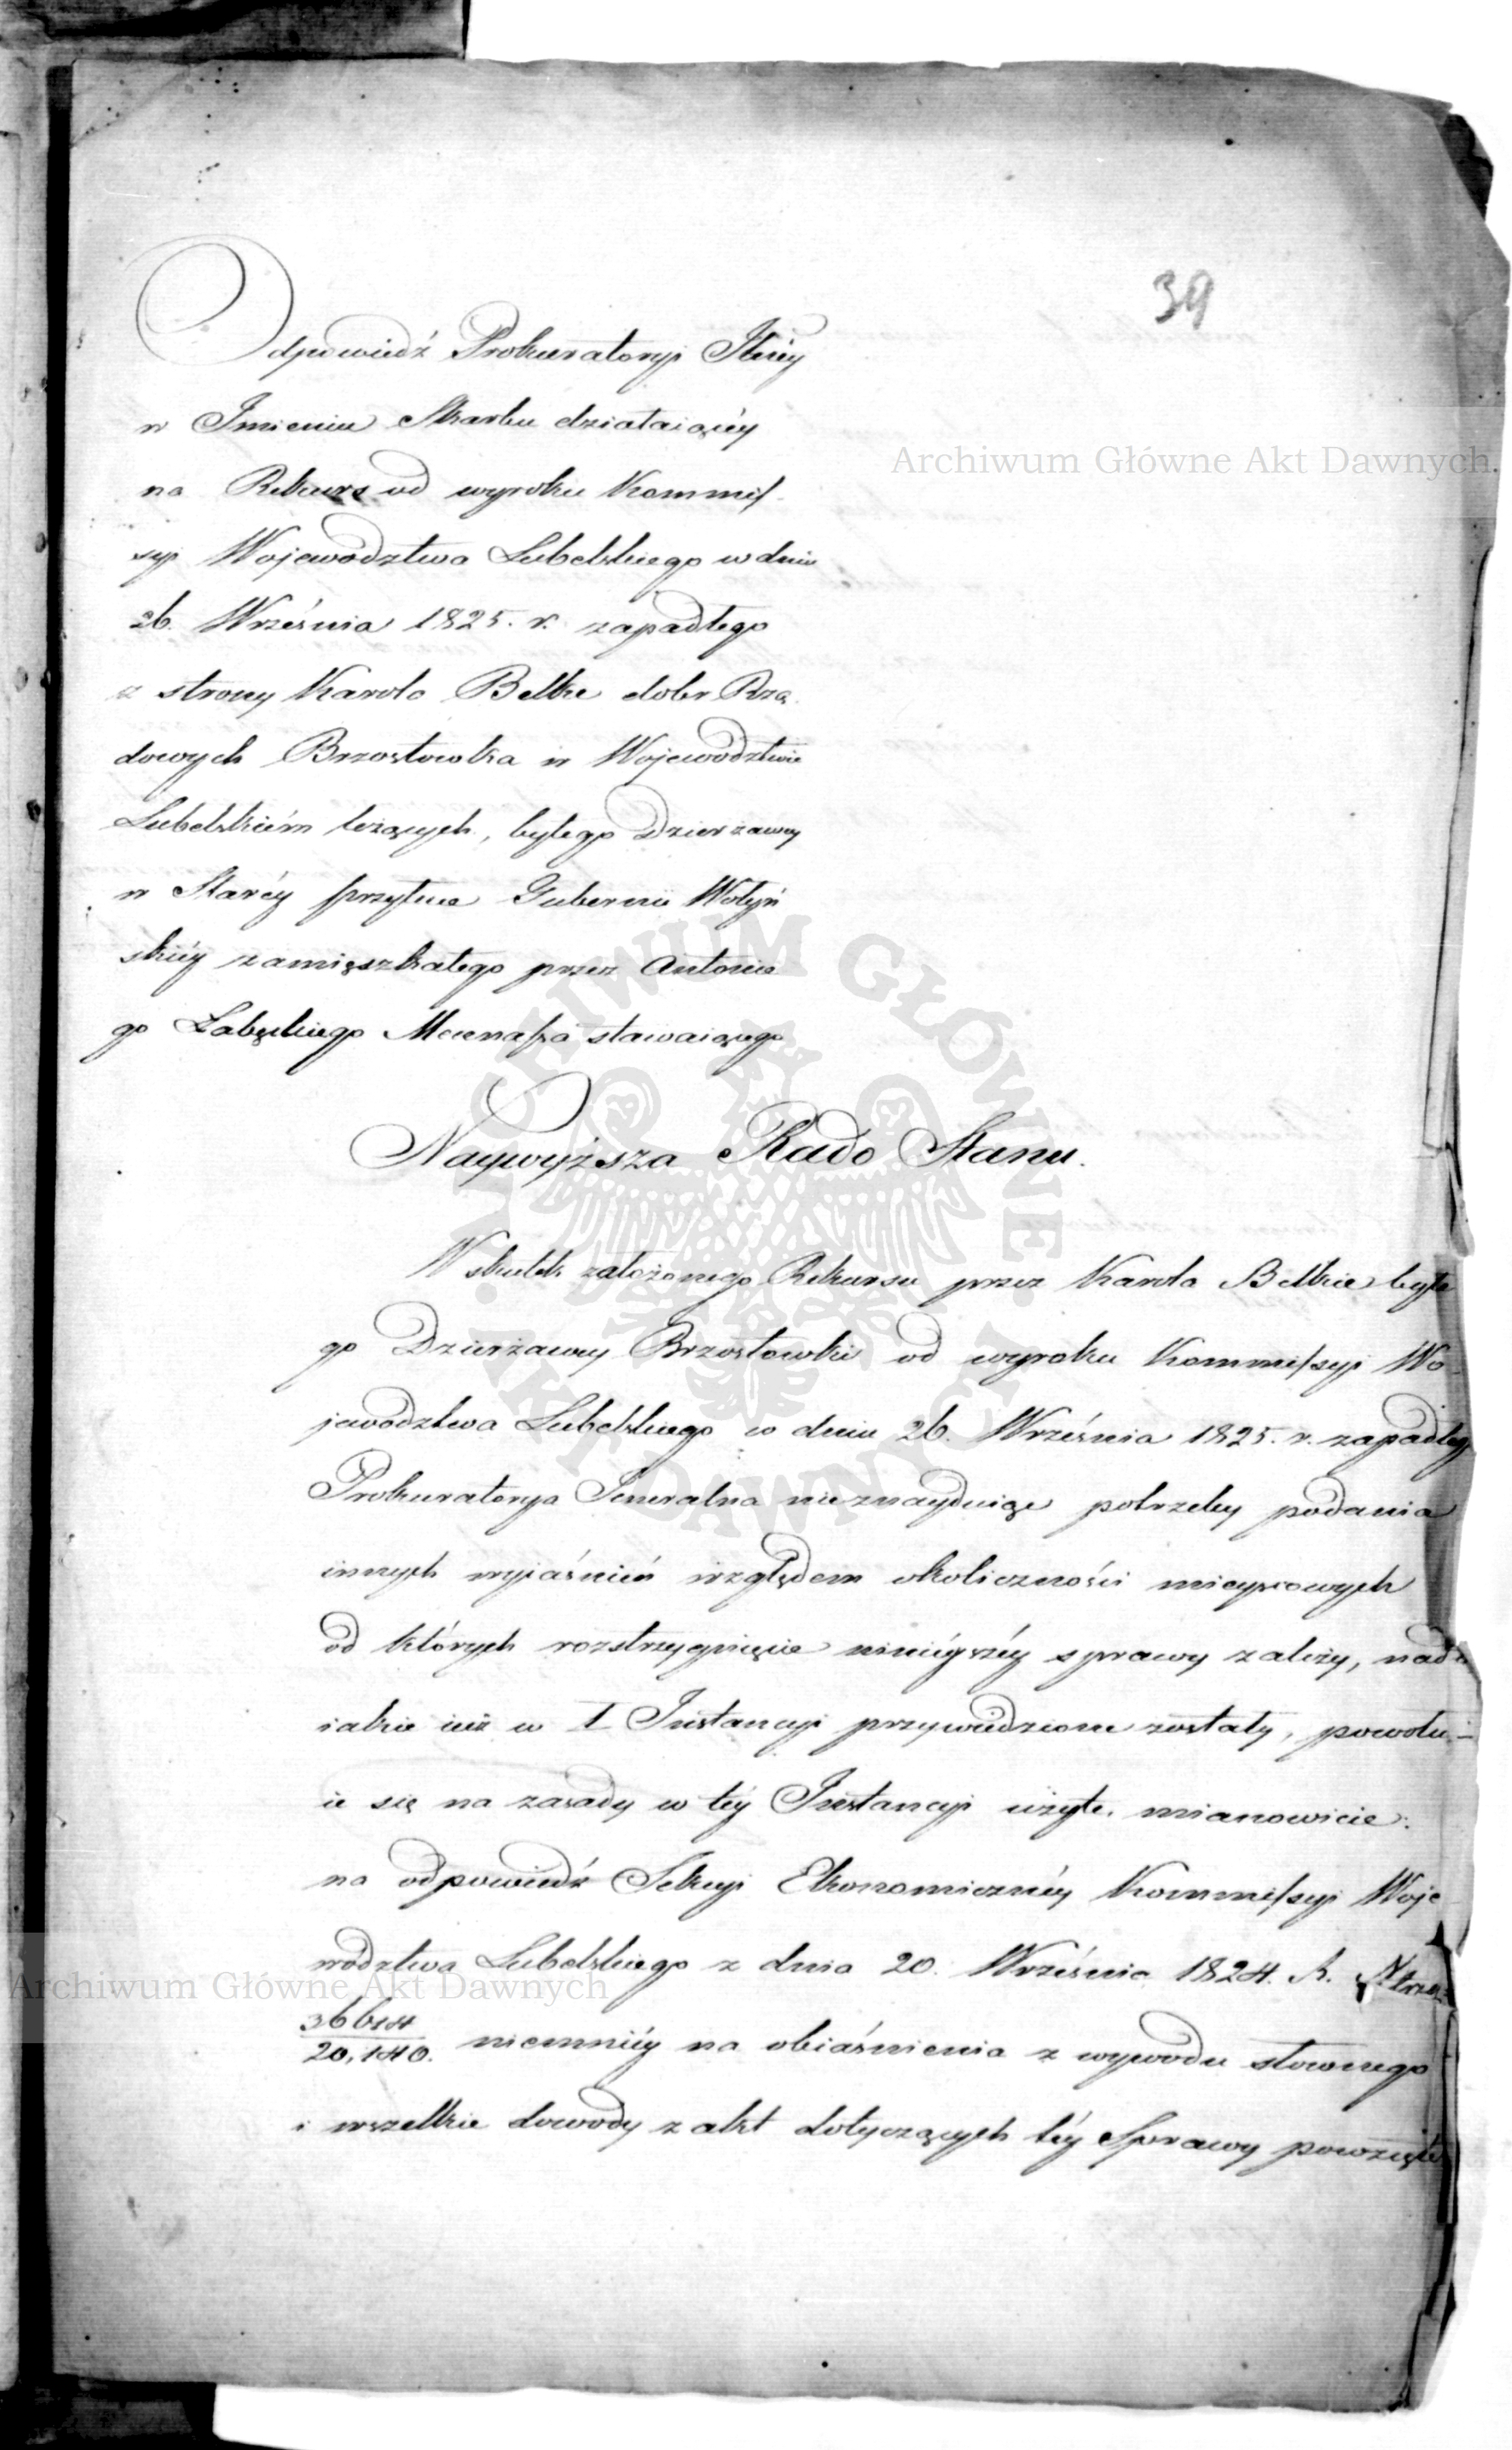 39
Odpowiedź Prokuratoryi Jlnéy
w Imieniu Skarbu działaiącéy
na Rekurs od wyroku Kommis-
syi Wojewodztwa Lubelskiego w dniu
26. Września 1825. r. zapadłego
z strony Karola Betke dobr Rzą
dowych Brzostowka w Wojewodztwie
Lubelskiém leżących, byłego Dzierżawcy
w Staréy Gubernii Wołyń
skiéy zamięszkałego przez Antonie
go Łabęckiego Mecenasa stawaiącego
Naywyższa Rado Stanu.
W skutek założonego Rekursu przez Karola Betkie byłe
go Dzierżawcy Brzostowki od wyroku Kommissyi Wo
jewodztwa Lubelskiego w dniu 26. Września 1825. r. zapadłeg
Prokuratorya Jeneralna nieznayduiąc potrzeby podania
innych wyiaśnień względem okoliczności mieyscowych
od których rozstrzygnięcie ninieyszéy sprawy zależy, nad
iakie iuż w I Instancyi przywiedzione zostały, powołu-
ie się na zasady w téy Instancyi użyte, mianowicie:
na odpowiedź Sekcyi Ekonomicznéy Kommissyi Woje
wodztwa Lubelskiego z dnia 20. Września 1824. R.
36614
20,140. niemniéy na obiaśnienia z wywodu słownego
i wszelkie dowody z akt dotyczących téy Sprawy powzięte
Archiwum Główne Akt Dawnych
Archiwum Główne Akt Dawnych
ARCHIWUM GŁÓWNE AKT DAWNYCH